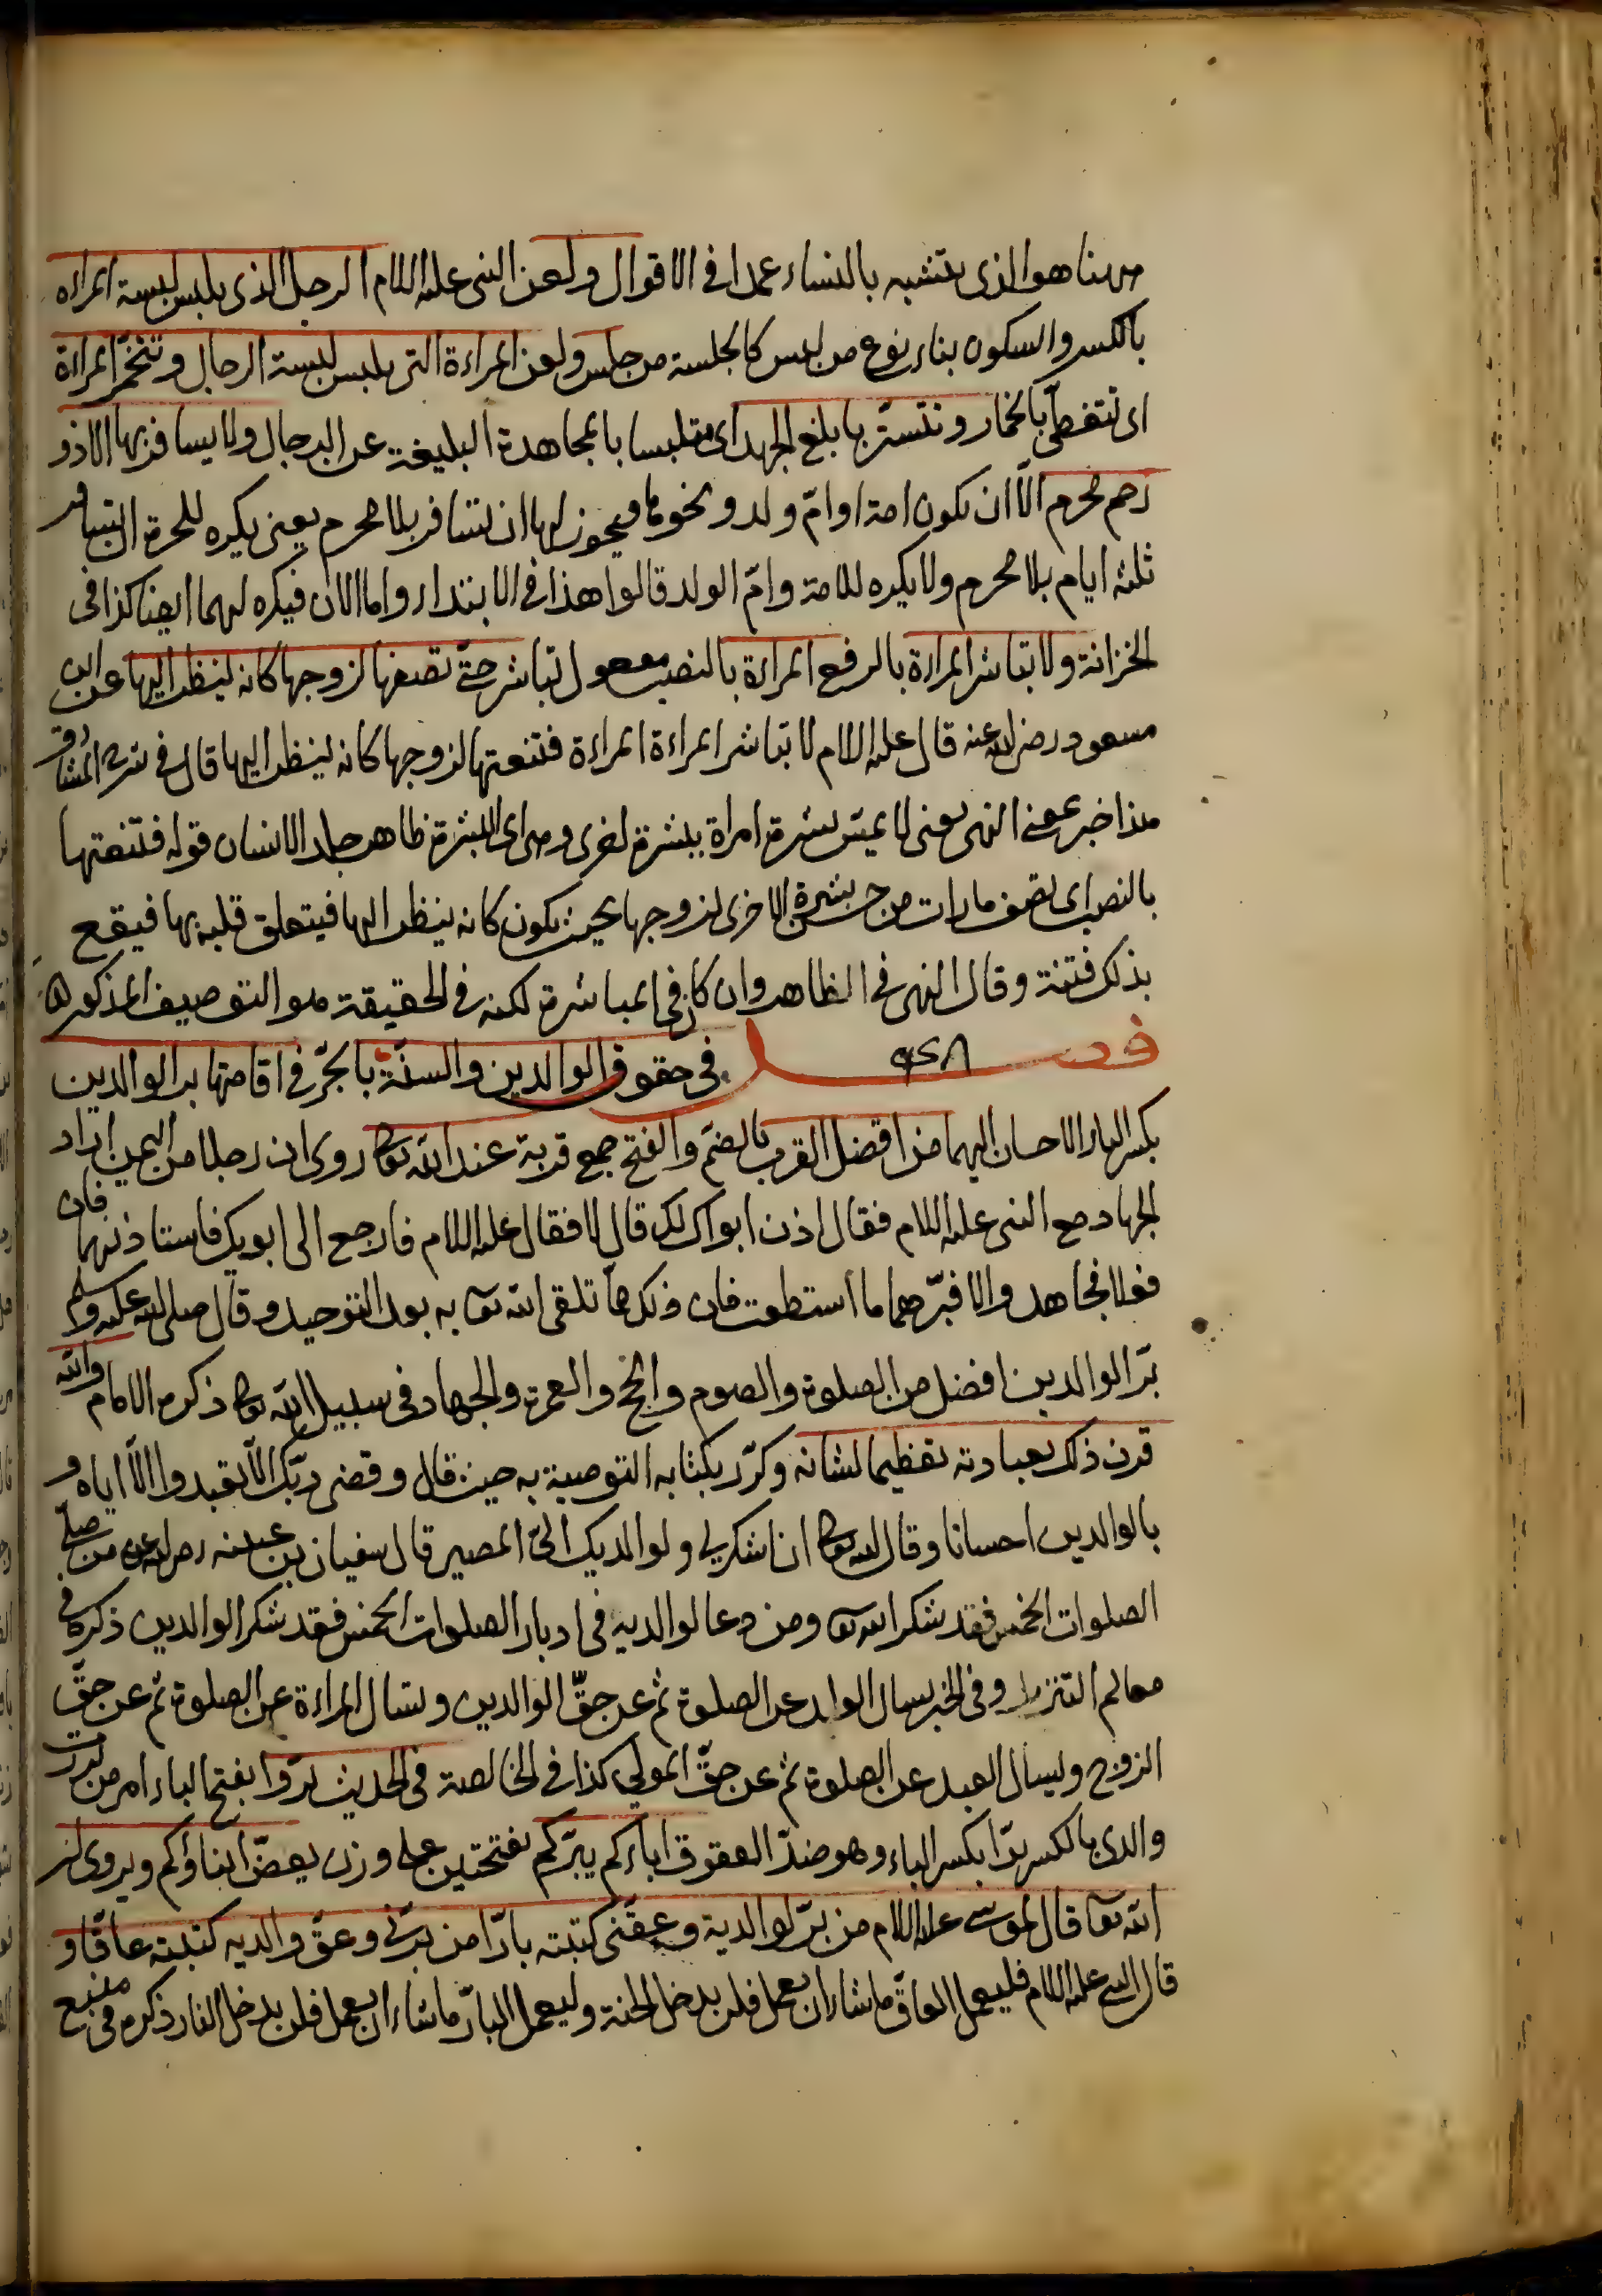 ههنا هو الذى يتشبه بالنساء عمدا فى الاقوال ولعن النبى عليه السلام الرجل الذى يلبس لبسة المراءة
بالكسر والسكون بناء نوع من لبس كالجلسة من جلس ولعن المراءة التى يلبس لبسة الرجال وتتخمّر المراءة
اى تتغطى بالخمار وتتستّر بابلغ الجهد اى متلبسا بالمجاهدة البليغة عن الرجال ولا يسافر بها الا ذو
رحم محرم الّا ان تكون امة او امّ ولد ونحوها فيجوز لها ان تسافر بلا محرم يعنى يكره للحرة ان تسافر
ثلثة ايام بلا محرم ولا يكره للامة وامّ الولد قالوا هذا فى الابتداء واما الان فيكره لهما ايضا كذا فى
الخزانة ولا تباشر المراءة بالرفع المراءة بالنصب مفعول تباشر حتّى تصفها لزوجها كانه ينظر اليها عن ابن
مسعود رضى الله عنه قال عليه السلام لا تباشر المراءة المراءة فتنعتها لزوجها كانه ينظر اليها قال فى شرح المشارق
هذا خبر بمعنى النهى يعنى لا يمسّ بشرة امراة ببشرة اخرى وهى اى البشرة ظاهر جلد الانسان قوله فتنعتها
بالنصب اى تصف ما رات من حسن بشرة الاخرى لزوجها بحيث يكون كانه ينظر اليها فيتعلق قلبه بها فيقع
بذلك فتنة وقال النهى فى الظاهر وان كان فى المباشرة لكنه فى الحقيقة هو التوصيف المذكور
فصل فى حقوق الوالدين والسنّة بالجّر فى اقامتها بر الوالدين
بكسر الباء الاحسان اليهما من افضل القرب بالضمّ والفتح جمع قربة عند الله تعالى روى ان رجلا من اليمن اراد
الجهاد مع النبى عليه السلام فقال اذن ابواك لك قال لا فقال عليه السلام فارجع الى ابويك فاستاذنهما فان
فعلا فجاهد والا فبّرهما ما استطعت فان ذلك ممّا تلقى الله تعالى به بعد التوحيد وقال صلى الله عليه وسلم
برّ الوالدين افضل من الصلوة والصوم والحج والعمرة والجهاد فى سبيل الله تعالى ذكره الامام والله
قرن ذلك بعبادته تعظيما لشانه وكرّر بكتابه التوصية به حيث قال وقضى ربّك الّا تعبدوا الّا اياه و
بالوالدين احسانا وقال الله تعالى ان اشكر لى ولوالديك الىّ المصير قال سفيان بن عيينه رضى الله عنه من صلّى
الصلوات الخمس فقد شكر الله تعالى ومن دعا لوالديه فى ادبار الصلوات الخمس فقد شكر الوالدين ذكره فى
معالم التنزيل وفى الخبر يسال الولد عن الصلوة ثم عن حقّ الوالدين ويسال المراءة عن الصلوة ثم عن حقّ
الزوج ويسال العبد عن الصلوة ثم عن حقّ المولى كذا فى الخالصة فى الحديث برّوا بفتح الباء امر من بررت
والدى بالكسر برّا بكسر الباء وهو ضدّ العقوق اباءكم يبرّكم بفتحتين على وزن يعضّ ابناؤكم ويروى ان
الله تعالى قال لموسى عليه السلام من برّ لوالدية وعقّنى كتبته بارّا من برّنى وعقّ والديه كتبته عاقّا و
قال النبى عليه السلام فليعمل العاقّ ما شاء ان يعمل فلن يدخل الجنة وليعمل البارّ ما شاء ان يعمل فلن يدخل النار ذكره فى منبع